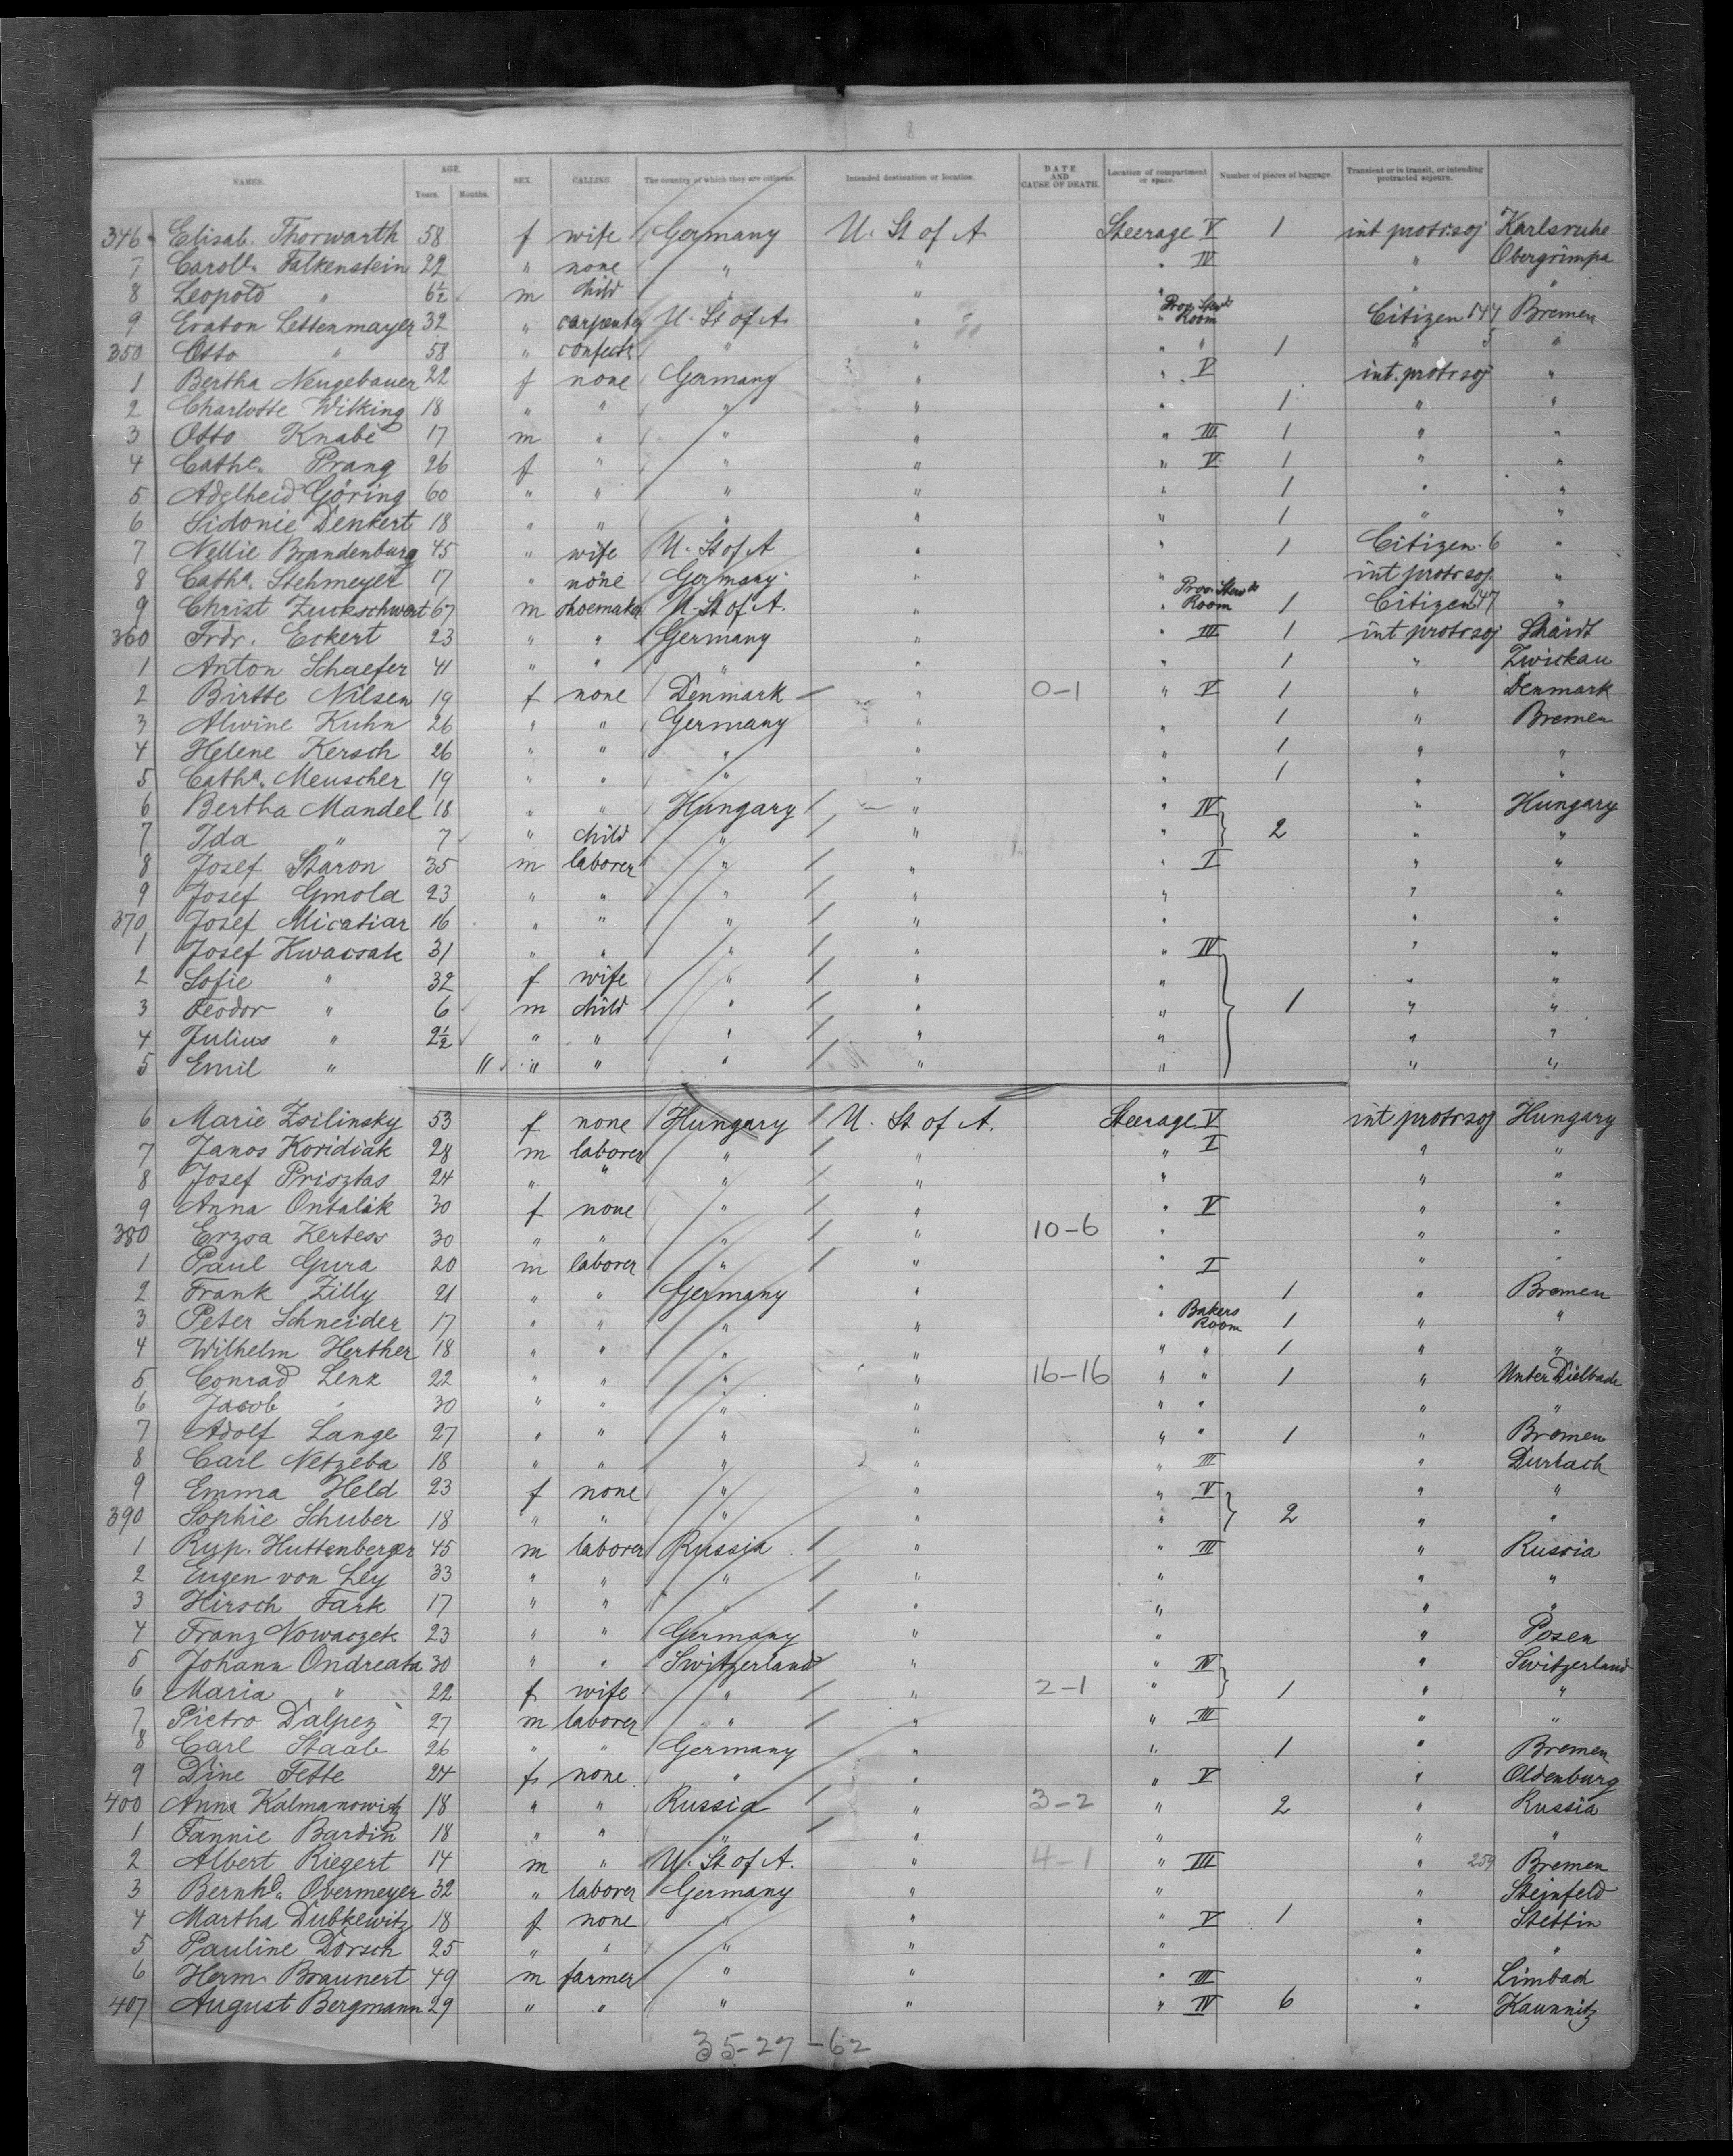 NAMES. AGE. Years. Months. SEX. CALLING. The country of which they are citizens. Intended destination or location. DATE AND CAUSE OF DEATH. Location of compartment or space. Number of pieces of baggage. Transient or in transit, or intending protracted sojourn.
346 Elisab. Thorwarth 58 f wife Germany U. St of A. Steerage V 1 int protr. soj Karlsruhe
7 Caroll. Falkenstein 22 " none " " " IV " Obergrimpa
8 Leopold " 6½ m child " " " " "
9 Eraton Lettenmayer 32 " carpenter U. St of A. " " Prov. Stewds Room Citizen 144 Bremen
350 Otto " 58 " confectr " " " " 1 " 5 "
1 Bertha Neugebauer 22 f none Germany " " V int. protr soj "
2 Charlotte Wilking 18 " " " " " 1 " "
3 Otto Knabe 17 m " " " " III 1 " "
4 Cathe. Prang 26 f " " " " V 1 " "
5 Adelheid Göring 60 " " " " " 1 " "
6 Sidonie Denkert 18 " " " " " 1 " "
7 Nellie Brandenburg 45 " wife U. St of A " " 1 Citizen 6 "
8 Catha. Stehmeyer 17 " none Germany " " int protr soj. "
9 Christ Zuckschwert 67 m shoemaker U. St of A. " " Prov. Stewds Room 1 Citizen 147 "
360 Frdr. Eckert 23 " " Germany " " III 1 int protr soj Skaidt
1 Anton Schaefer 41 " " " " " 1 " Zwickau
2 Birtte Nilsen 19 f none Denmark " 0-1 " V 1 " Denmark
3 Alwine Kuhn 26 " " Germany " " 1 " Bremen
4 Helene Kersch 26 " " " " " 1 " "
5 Catha. Meuscher 19 " " " " " 1 " "
6 Bertha Mandel 18 " " Hungary " " IV " Hungary
7 Ida " 7 " child " " " 2 " "
8 Josef Staron 35 m laborer " " " I " "
9 Josef Gmola 23 " " " " " " "
370 Josef Micatiar 16 " " " " " " "
1 Josef Kwacsak 31 " " " " " IV " "
2 Sofie " 32 f wife " " " " "
3 Feodor " 6 m child " " " 1 " "
4 Julius " 2½ " " " " " " "
5 Emil " 11 " " " " " " "
6 Marie Zsilinsky 53 f none Hungary U. St of A. Steerage V int protr soj Hungary
7 Janos Koridiak 28 m laborer " " " I " "
8 Josef Prisztas 24 " " " " " " "
9 Anna Ontalák 30 f none " " " V " "
380 Erzsa Kertess 30 " " " " 10-6 " " "
1 Paul Gura 20 m laborer " " " I " "
2 Frank Zilly 21 " " Germany " " 1 " Bremen
3 Peter Schneider 17 " " " " " Bakers Room 1 " "
4 Wilhelm Herther 18 " " " " " " 1 " "
5 Conrad Lenz 22 " " " " 16-16 " " 1 " Unter Dielbach
6 Jacob " 30 " " " " " " " "
7 Adolf Lange 27 " " " " " " 1 " Bremen
8 Carl Netzeba 18 " " " " " III " Durlach
9 Emma Held 23 f none " " " V " "
390 Sophie Schuber 18 " " " " " 2 " "
1 Rup. Huttenberger 45 m laborer Russia " " III " Russia
2 Eugen von Ley 33 " " " " " " "
3 Hirsch Fark 17 " " " " " " "
4 Franz Nowaczek 23 " " Germany " " " Posen
5 Johann Ondreata 30 " " Switzerland " " IV " Switzerland
6 Maria " 22 f wife " " 2-1 " 1 " "
7 Pietro Dalpez 27 m laborer " " " III " "
8 Carl Staab 26 " " Germany " " 1 " Bremen
9 Dine Fette 24 f none " " " V " Oldenburg
400 Anna Kalmanowitz 18 " " Russia " 3-2 " 2 " Russia
1 Fannie Bardin 18 " " " " " " "
2 Albert Riegert 14 m " U. St of A. " 4-1 " III " 259 Bremen
3 Bernhd. Obermeyer 32 " laborer Germany " " " Steinfeld
4 Martha Dubkewitz 18 f none " " " V 1 " Stettin
5 Pauline Dorsch 25 " " " " " " "
6 Herm. Braunert 49 m farmer " " " III " Limbach
407 August Bergmann 29 " " " " " IV 6 " Kaunnitz
35-27-62